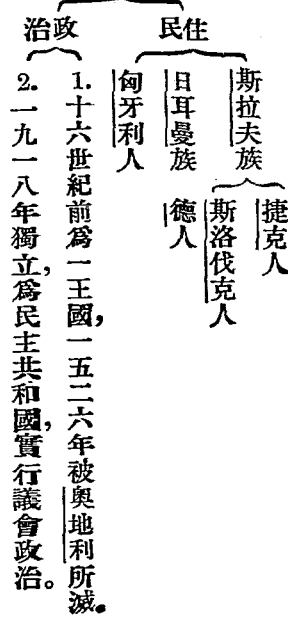 住民
斯拉夫族
捷克人
斯洛伐克人
日耳曼族
德人
匈牙利人
政治
1.十六世紀前爲一王國，一五二六年被奧地利所滅。
2.一九一八年獨立，爲民主共和國，實行議會政治。